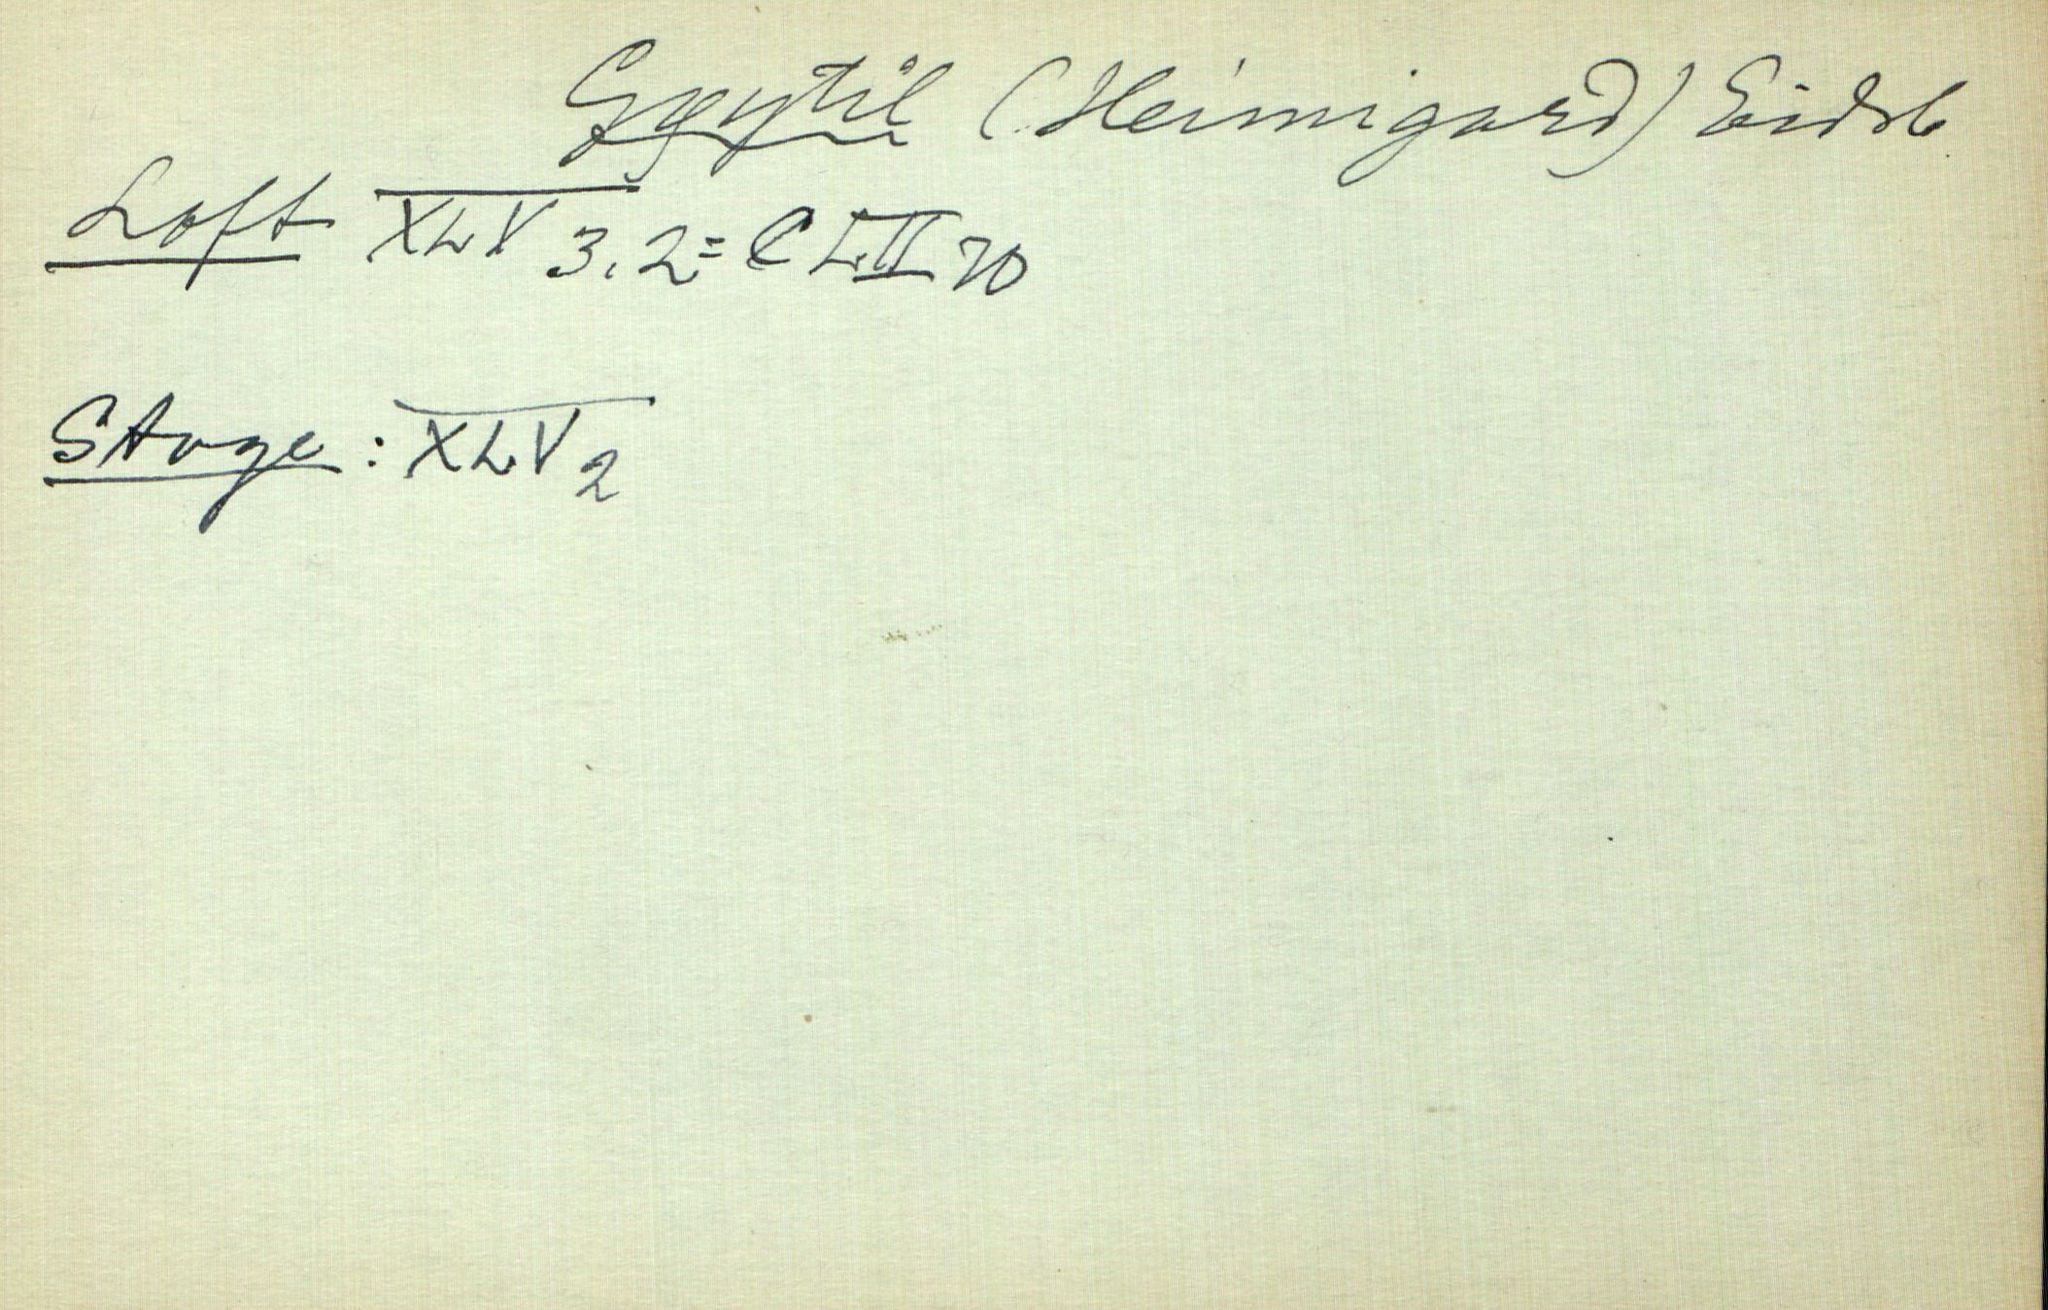 Gjøytil (Heimigard) Eidsb
Loft XLV 3.2 = CLII 70
Stoge: XLV 2